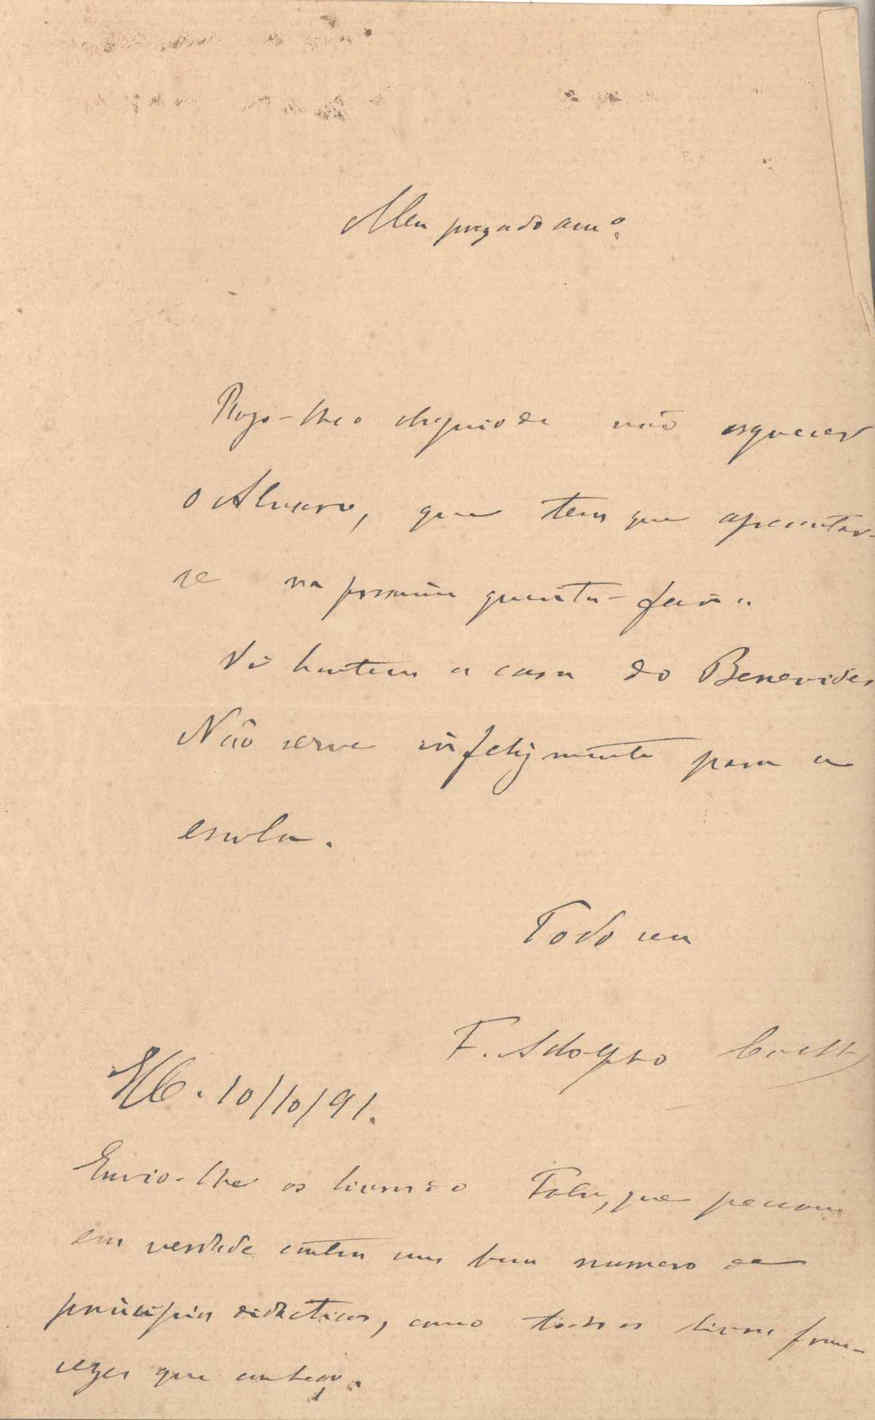 Meu prezado amº.
Rogo-lhe o obsequio de não esquecer
o Alvaro, que tem que apresentar-
se na proxima quinta-feira.
Vi hontem a casa do Benevides
Não serve infelizmente para a
escola.
Todo seu
F. Adolpho Coelho
10/10/91.
Envio-lhe os livros do que
em verdade contem um bom numero de
principios didacticos, como todos os livros fran-
cezes que conheço.